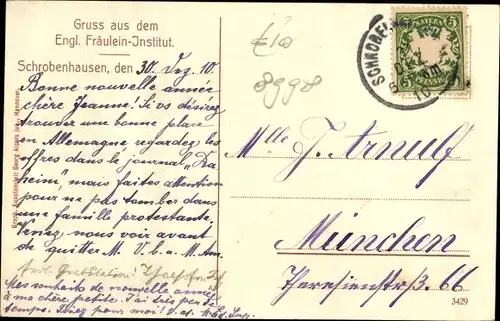 Gruss aus dem
Engl. Fräulein-Institut.
Schrobenhausen, den 30. Dez. 10.
Bonne nouvelle année
chère Jeanne! Si vs désirez
trouver une bonne place
en Allemagne regardez les
offres dans le journal „Da-
heim", mais faites attention
pour ne pas tomber dans
une famille protestante.
Venez nous voir avant
de quitter M. V. b. a. M. Am.
Mes souhaits de nouvelle année
à ma chère petite. J'ai très peu de
temps. Priez pour moi!
Graph. Kunstanstalt Georg Alpers jun., Hannover.
8998
BAYERN
5 5
SCHROBENH
DEZ
Mlle J. Arnulf
München
Theresienstrß. 66
3429